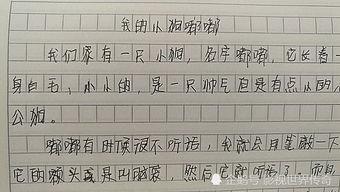 我的小狗嘟嘟
我们家有一只小狗，名字嘟嘟，它长着一
身白毛，小小的，是一只帅气但是有点小的小
公狗。
嘟嘟有时候很不听话，我就会用笔敲一下
它的额头或是叫
企鹅号 影视世界传奇